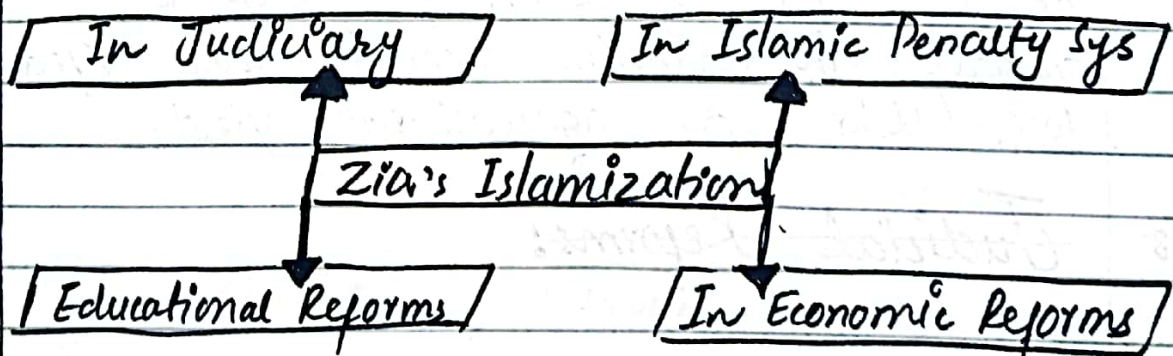 In Judiciary
In Islamic Penalty Sys
Zia's Islamization
Educational Reforms
In Economic Reforms